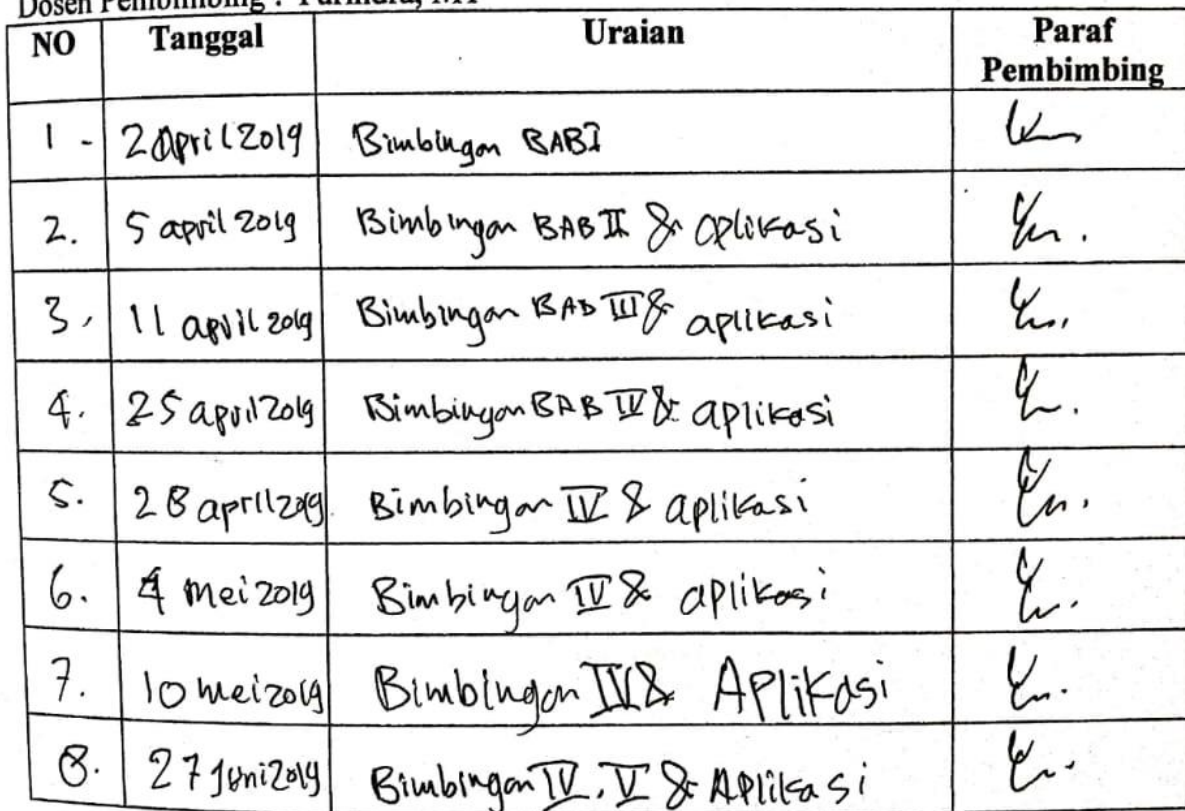 NO Tanggal Uraian Paraf Pembimbing
1 - 2 April 2019 Bimbingan BAB I
2. 5 april 2019 Bimbingan BAB II & aplikasi
3. 11 april 2019 Bimbingan BAB III & aplikasi
4. 25 april 2019 Bimbingan BAB IV & aplikasi
5. 28 april 2019 Bimbingan IV & aplikasi
6. 4 mei 2019 Bimbingan IV & aplikasi
7. 10 mei 2019 Bimbingan IV & Aplikasi
8. 27 Juni 2019 Bimbingan IV, V & Aplikasi